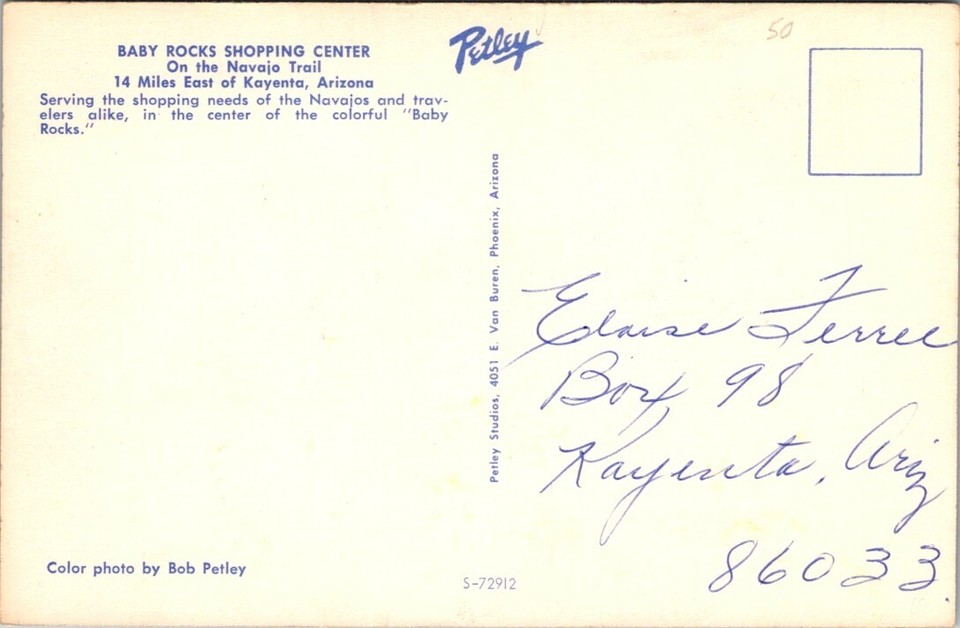 BABY ROCKS SHOPPING CENTER
On the Navajo Trail
14 Miles East of Kayenta, Arizona
Serving the shopping needs of the Navajos and trav-
elers alike, in the center of the colorful "Baby
Rocks."
Petley
50
Petley Studios, 4051 E. Van Buren, Phoenix, Arizona
Eloise Ferree
Box 98
Kayenta, Ariz
86033.
Color photo by Bob Petley
S-72912